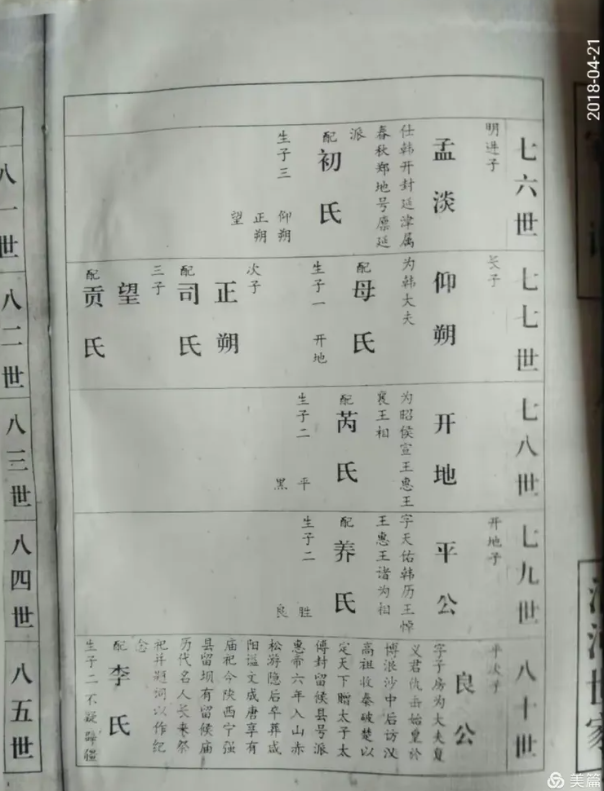 2018-04-21
七六世
明进子
孟淡
仕韩开封延津属
春秋郑地号廪延
派
配
初氏
生子三
仰朔
正朔
望
七七世
长子
仰朔
为韩大夫
配
母氏
生子一 开地
次子
正朔
配
司氏
三子
望
配
贡氏
七八世
开地
为昭侯宣王惠王
襄王相
配
芮氏
生子二
平
黑
七九世
开地子
平公
字天佑韩历王悼
王惠王诸为相
配
养氏
生子二
胜
良
八十世
平次子
良公
字子房为大夫复
义君仇击始皇於
博浪沙中后访汉
高祖收秦破楚以
定天下赠太子太
傅封留候县号派
惠帝六年入山赤
松游隐后卒葬咸
阳谥文成唐享有
庙祀今陕西宁强
县留坝有留候庙
历代名人长来祭
祀并题词以作纪
念
配
李氏
生子二不疑辟疆
八一世
八二世
八三世
八四世
八五世
美篇